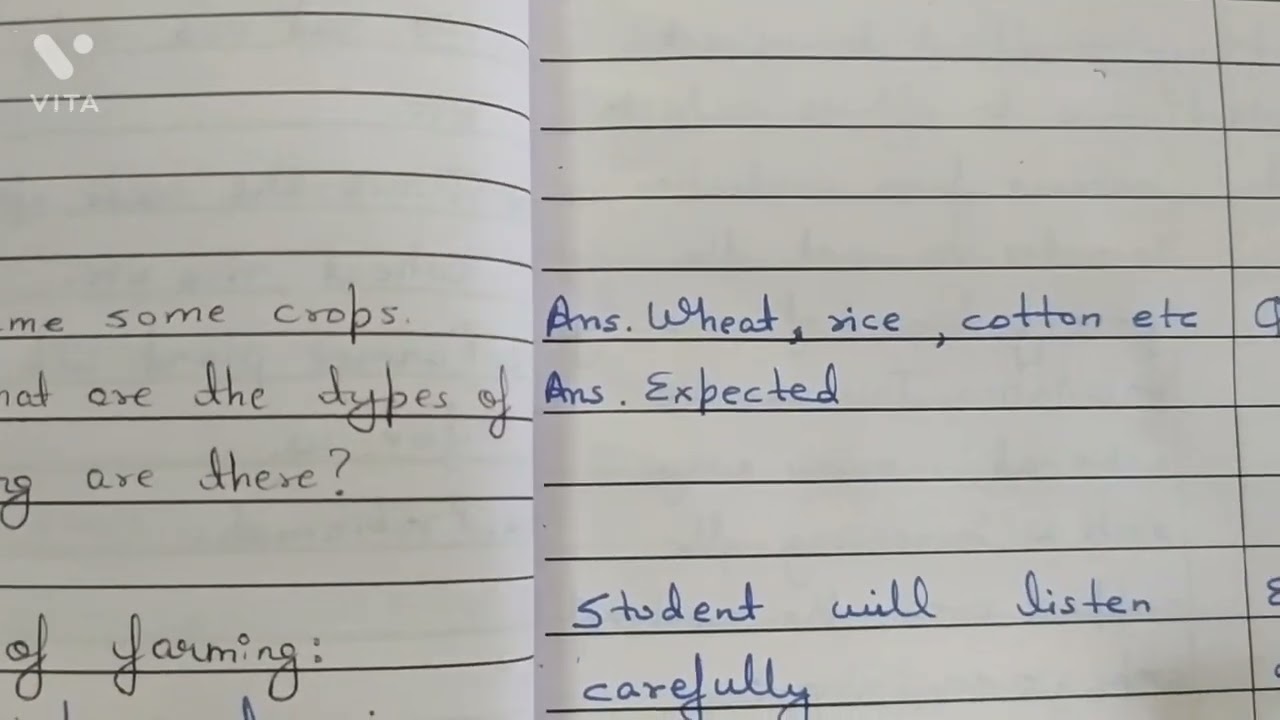 VITA
me some crops.
are the types of
are there?
of farming:
Ans. Wheat, rice, cotton etc
Ans. Expected
Student will listen
carefully